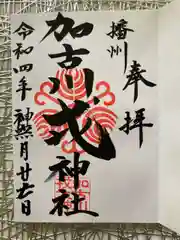 奉拝
播州
加古川戎神社
令和四年
神無月廿日